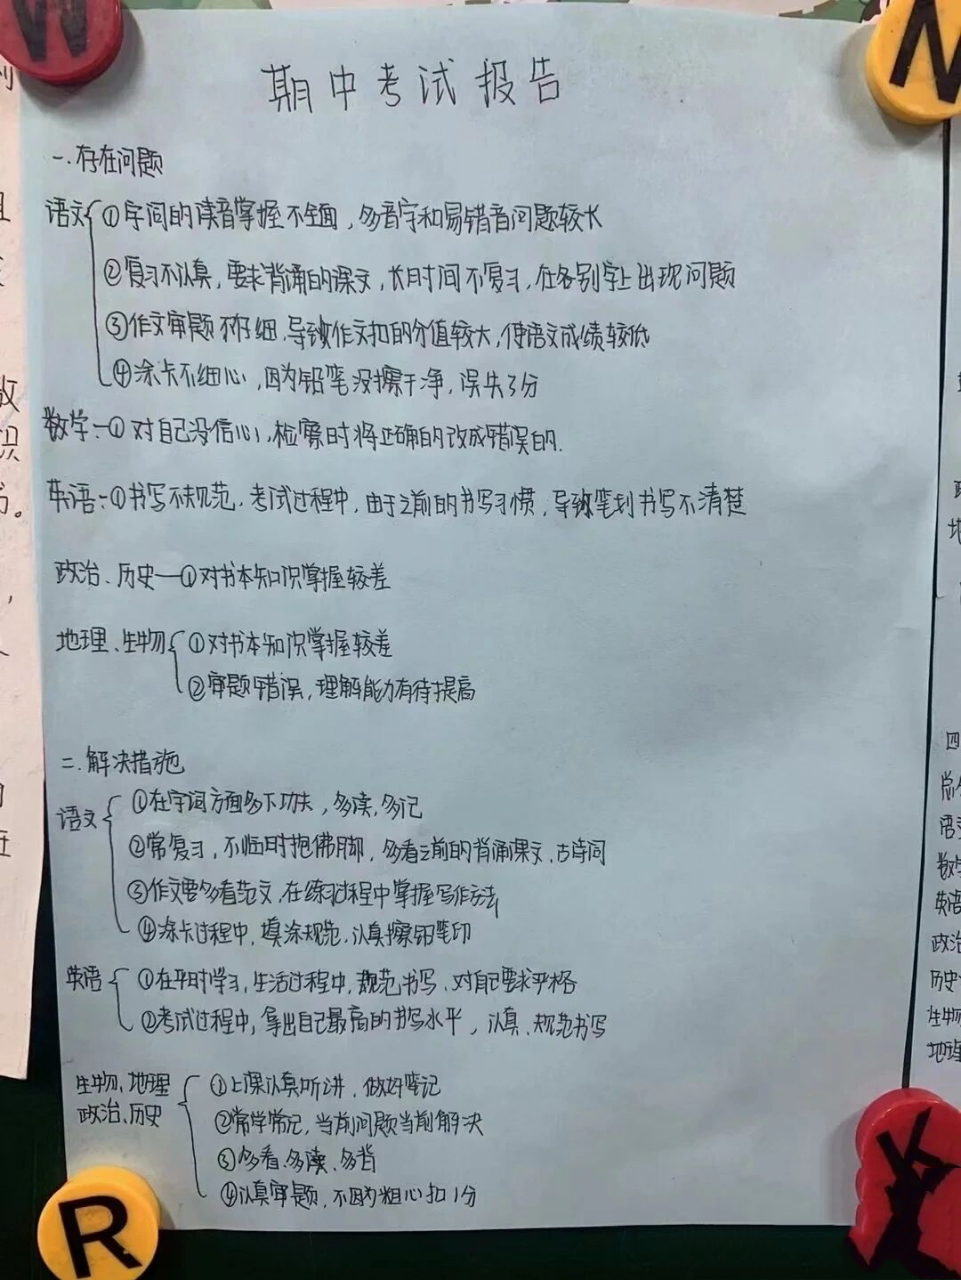 期中考试报告
一.存在问题
语文 ①字词的读音掌握不全面，多音字和易错音问题较长
②复习不认真，要求背诵的课文，长时间不复习，在各别字上出现问题
③作文审题不仔细，导致作文扣的分值较大，使语文成绩较低
④涂卡不细心，因为铅笔没擦干净，误失了分
数学:—①对自己没信心，检察时将正确的改成错误的.
英语:—①书写不规范，考试过程中，由于之前的书写习惯，导致笔划书写不清楚
政治、历史—①对书本知识掌握较差
地理、生物 ①对书本知识掌握较差
②审题错误，理解能力有待提高
二.解决措施
语文 ①在字词方面多下功夫，多读，多记
②常复习，不临时抱佛脚，多看之前的背诵课文、古诗词
③作文要多看范文，在练习过程中掌握写作方法
④涂卡过程中，填涂规范，认真擦铅笔印
英语 ①在平时学习，生活过程中，规范书写，对自己要求严格
②考试过程中，拿出自己最高的书写水平，认真、规范书写
生物、地理
政治、历史
①上课认真听讲，做好笔记
②常学常记，当前问题当前解决
③多看、多读、多背
④认真审题，不因为粗心扣1分
W
N
R
四
数学
英语
政治
历史
生物
地理